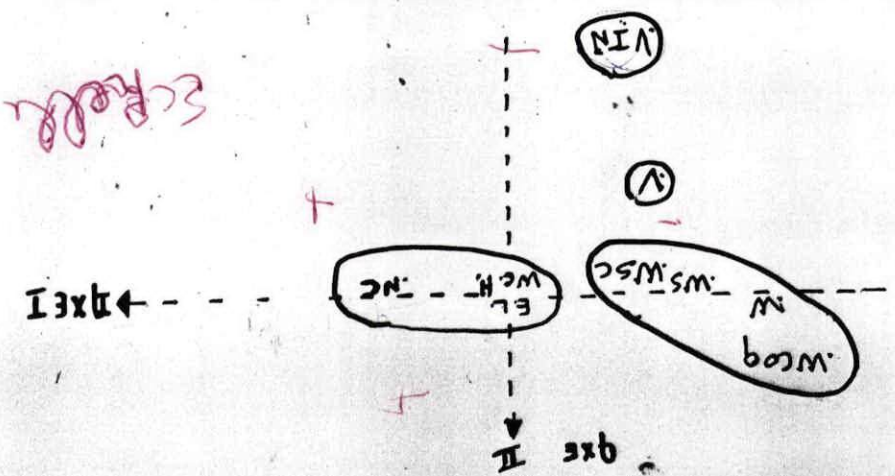 axe II
.Wcoq
W .WS .WSC EL .NC axe I
WC.H.
V.
V.IN